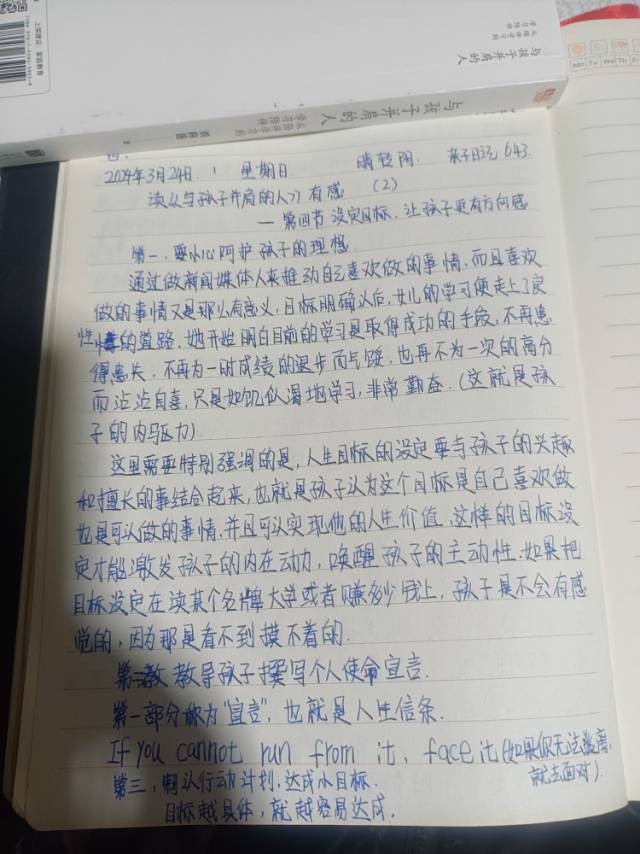 上架建议：家庭教育
与孩子并肩的人
从陪伴学习到
学习陪伴
与孩子并肩的人
从陪伴学习到
学习陪伴
2024年3月24日. 星期日. 晴转阴. 亲子日记643.
读《与孩子并肩的人》有感 (2)
— 第四节设定目标，让孩子更有方向感
第一、要小心呵护孩子的理想.
通过做新闻媒体人来推动自己喜欢做的事情，而且喜欢
做的事情又是那么有意义，目标明确以后，女儿的学习便走上了良
性的道路. 她开始明白目前的学习是取得成功的手段，不再患
得患失，不再为一时成绩的退步而气馁，也再不为一次的高分
而沾沾自喜，只是如饥似渴地学习，非常勤奋. (这就是孩
子的内马区力)
这里需要特别强调的是，人生目标的设定要与孩子的兴趣
和擅长的事结合起来，也就是孩子认为这个目标是自己喜欢做
也是可以做的事情，并且可以实现他的人生价值. 这样的目标设
定才能激发孩子的内在动力，唤醒孩子的主动性. 如果把
目标设定在读某个名牌大学或者赚多少钱上，孩子是不会有感
觉的，因为那是看不到摸不着的.
第二 教导孩子撰写个人使命宣言.
第一部分称为“宣言”，也就是人生信条.
If you cannot run from it, face it (如果你无法逃离，
就去面对).
第三、制认行动计划，达成小目标.
目标越具体，就越容易达成.